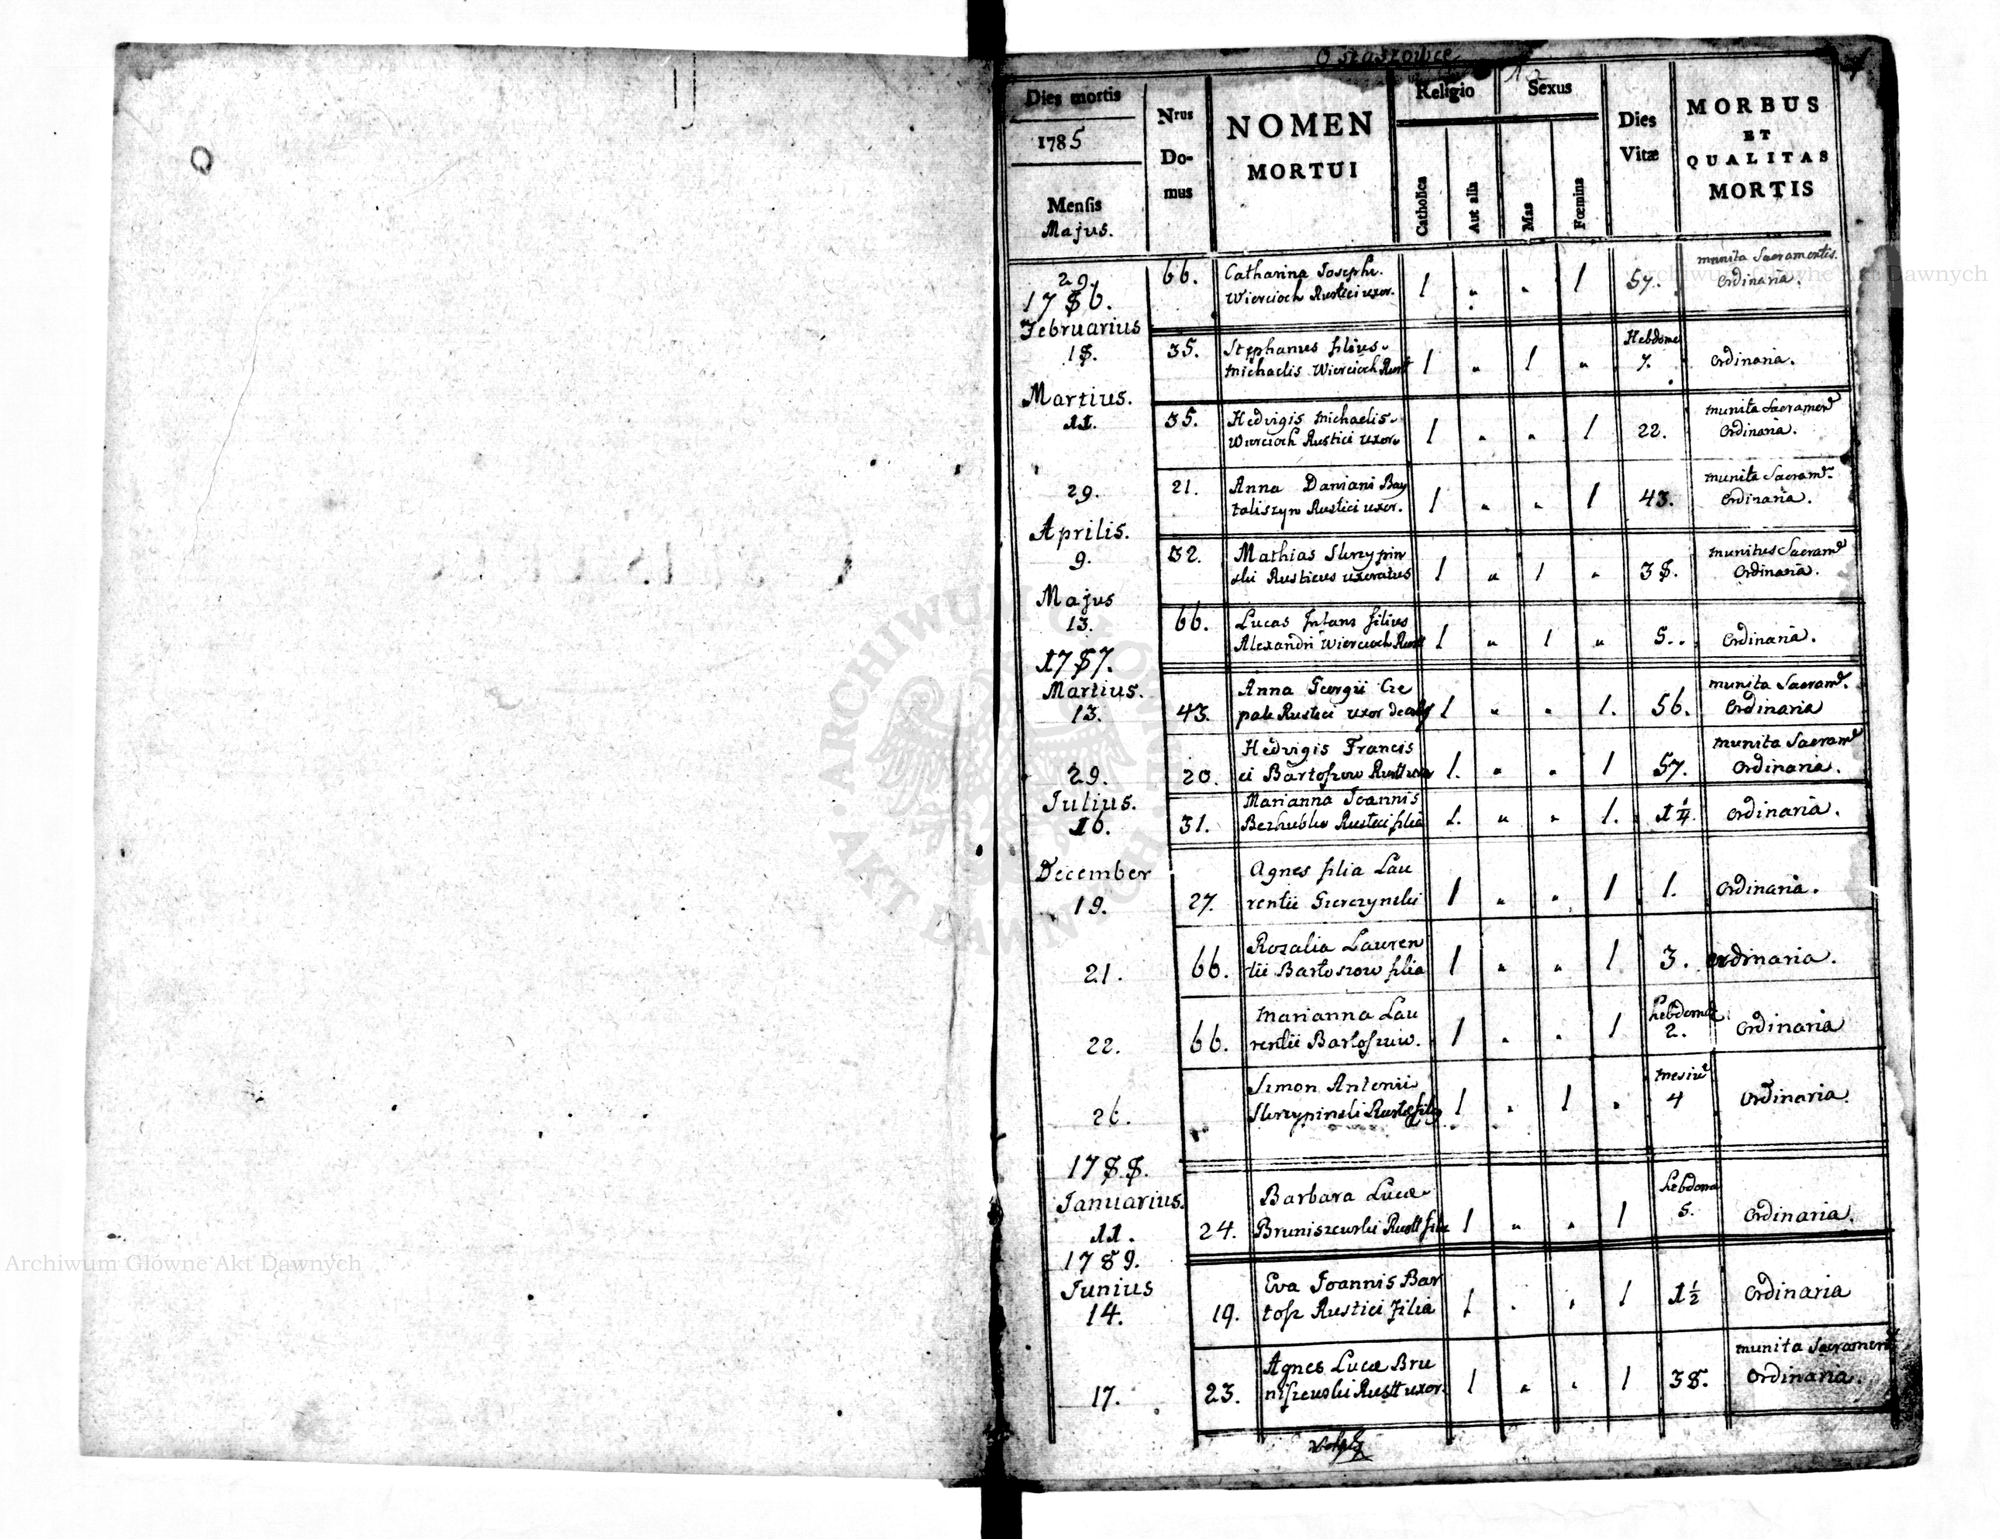 Ostaszowce
Dies mortis
1785
Mensis
Majus.
Nrus
Do-
mus
NOMEN
MORTUI
Religio
Catholica
Aut alia
Sexus
Mas
Fœmina
Dies
Vitæ
MORBUS
ET
QUALITAS
MORTIS
29. 66. Catharina Josephi 1 " " 1 57. munita Sacramentis.
Wiercioch Rustici uxor. Ordinaria.
1786.
Februarius
18. 35. Stephanus filius 1 " 1 " Hebdome 7. Ordinaria.
Michaelis Wiercioch Rust
Martius.
11. 35. Hedvigis Michaelis 1 " " 1 22. munita Sacramen
Wiercioch Rustici uxor. Ordinaria.
29. 21. Anna Damiani Bay 1 " " 1 43. munita Sacram
taliszyn Rustici uxor. Ordinaria.
Aprilis.
9. 32. Mathias Skrzypin 1 " 1 " 38. munitus Sacram
ski Rusticus uxoratus Ordinaria.
Majus
13. 66. Lucas Infans filius 1 " 1 " 5. Ordinaria.
Alexandri Wiercioch Rust
1787.
Martius.
13. 43. Anna Georgii Cze 1 " " 1. 56. munita Sacram.
pak Rustici uxor Ordinaria
29. 20. Hedvigis Francis 1. " " 1 57. munita Sacram
ci Bartoszow Rust uxor Ordinaria.
Julius.
16. 31. Marianna Joannis 1. " " 1. 1 1/4 Ordinaria.
Rustici filia
December
19. 27. Agnes filia Lau 1 " " 1 1. Ordinaria.
rentii Gierczynski
21. 66. Rozalia Lauren 1 " " 1 3. Ordinaria.
tii Bartoszow filia
22. 66. Marianna Lau 1 " " 1 hebdomad 2. Ordinaria
rentii Bartoszuw.
26. Simon Antonii 1 " 1 " 4 Ordinaria.
Skrzypinski Rust filius
1788.
Januarius.
11. 24. Barbara Lucæ 1 " " 1 hebdoma 5. Ordinaria.
Bruniszewski Rust filia
1789.
Junius
14. 19. Eva Joannis Bar 1 " " 1 1 1/2 Ordinaria
tosz Rustici Filia
17. 23. Agnes Lucæ Bru 1 " " 1 38. munita Sacrament
niszewski Rust uxor. Ordinaria.
Archiwum Główne Akt Dawnych
Archiwum Główne Akt Dawnych
ARCHIWUM GŁÓWNE AKT DAWNYCH